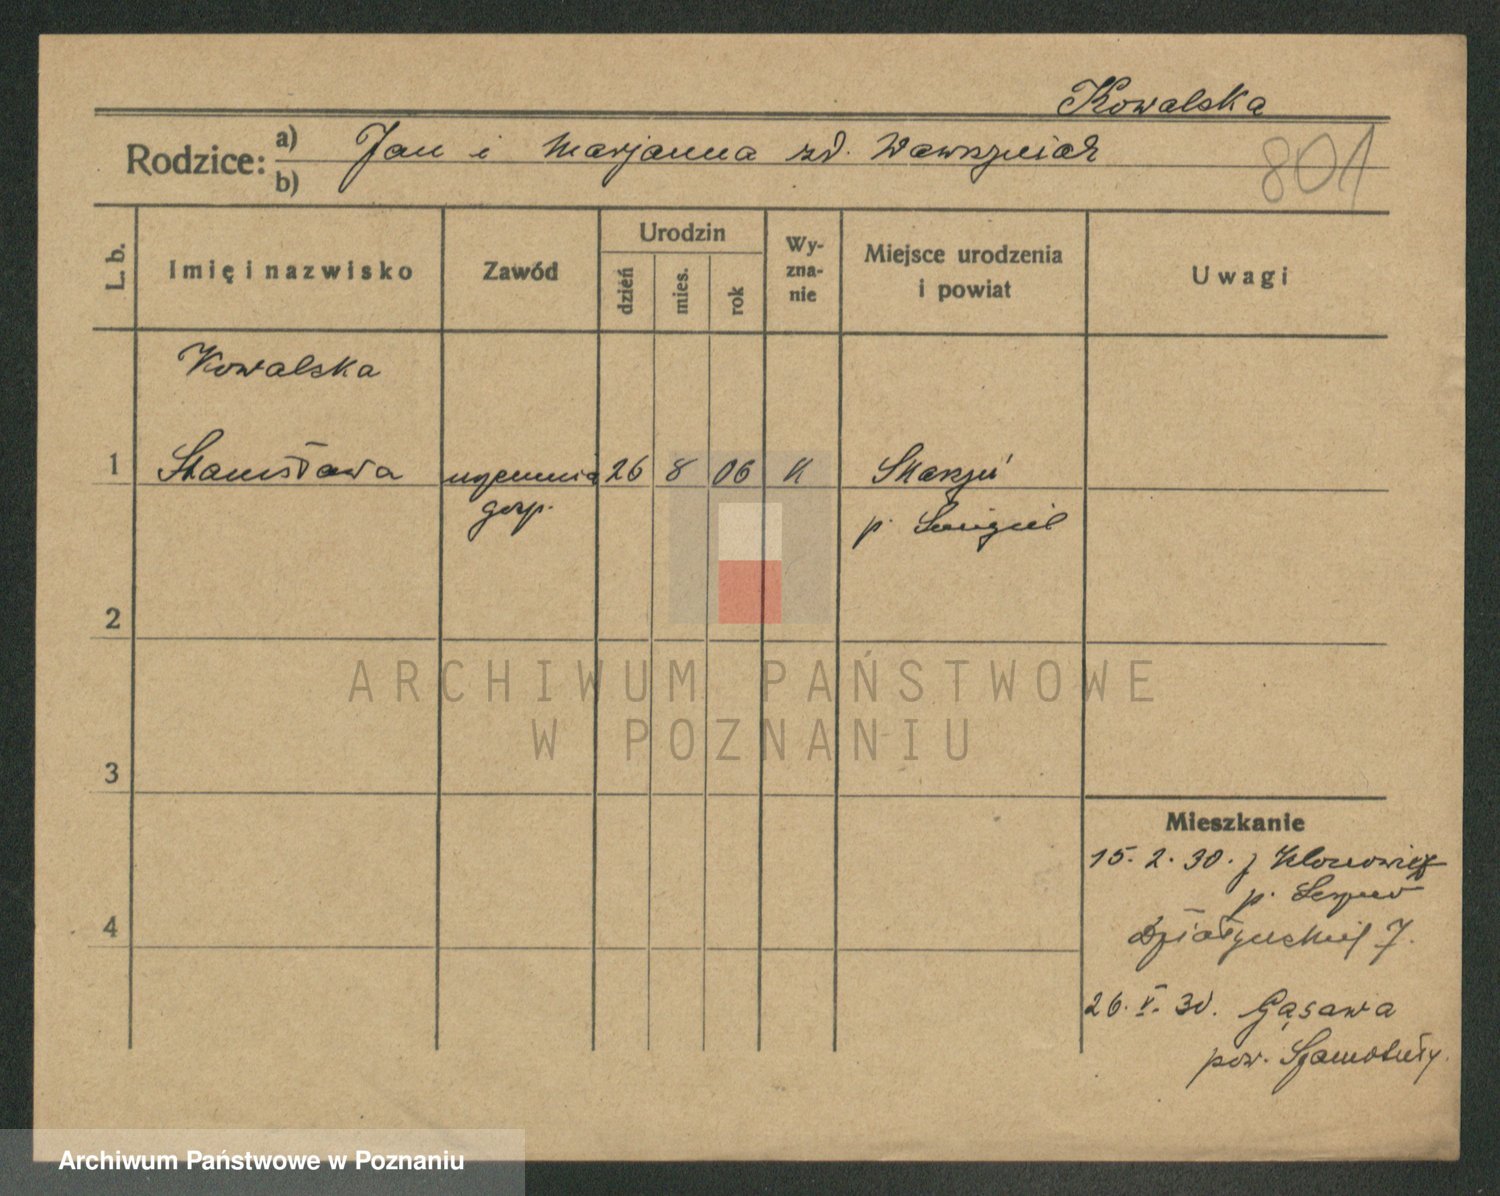 Kowalska
Rodzice: a) Jan i Marjanna zd. Wawrzyniak
b)
801
L. b.
Imię i nazwisko
Zawód
Urodzin
dzień
mies.
rok
Wy-
zna-
nie
Miejsce urodzenia
i powiat
Uwagi
Kowalska
1 Stanisława uczennica 26 8 06 K
gosp.
p. Śmigiel
2
3
4
ARCHIWUM PAŃSTWOWE
W POZNANIU
Mieszkanie
15. 2. 30. z Klonowiec
p. Leszno
Działyńskich 7.
26. V. 30. Gąsawa
pow. Szamotuły.
Archiwum Państwowe w Poznaniu